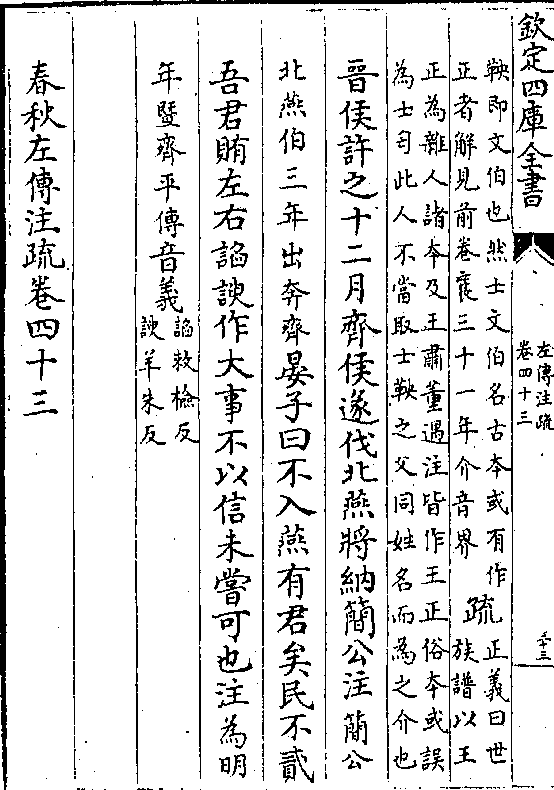 欽定四庫全書
左傳注疏
卷四十三
鞅即文伯也然士文伯名古本或有作
正者解見前卷襄三十一年介音界
疏
正義曰世
族譜以王
正為雜人諸本及王肅董遇注皆作王正俗本或誤
為士匄此人不當取士鞅之父同姓名而為之介也
晉侯許之十二月齊侯遂伐北燕將納簡公注簡公
北燕伯三年出奔齊晏子曰不入燕有君矣民不貳
吾君賄左右諂諛作大事不以信未嘗可也注為明
年暨齊平傳音義
諂敕檢反
諛羊朱反
春秋左傳注疏卷四十三